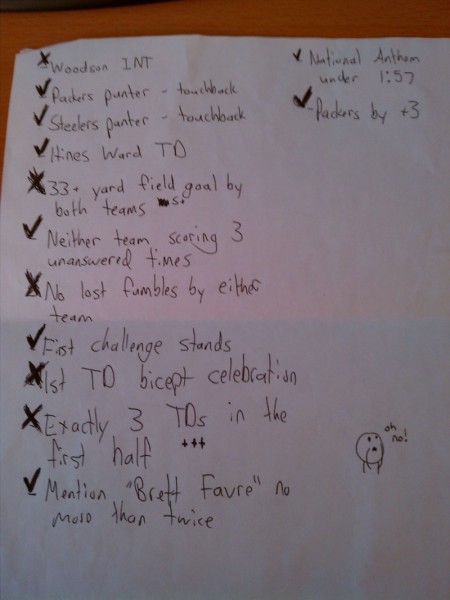 Woodson INT
Packers punter - touchback
Steelers punter - touchback
Hines Ward TD
33+ yard field goal by
both teams
Neither team scoring 3
unanswered times
No lost fumbles by either
team
First challenge stands
1st TD bicept celebration
Exactly 3 TDs in the
first half +++
Mention "Brett Favre" no
more than twice
National Anthem
under 1:57
Packers by +3
oh
no!